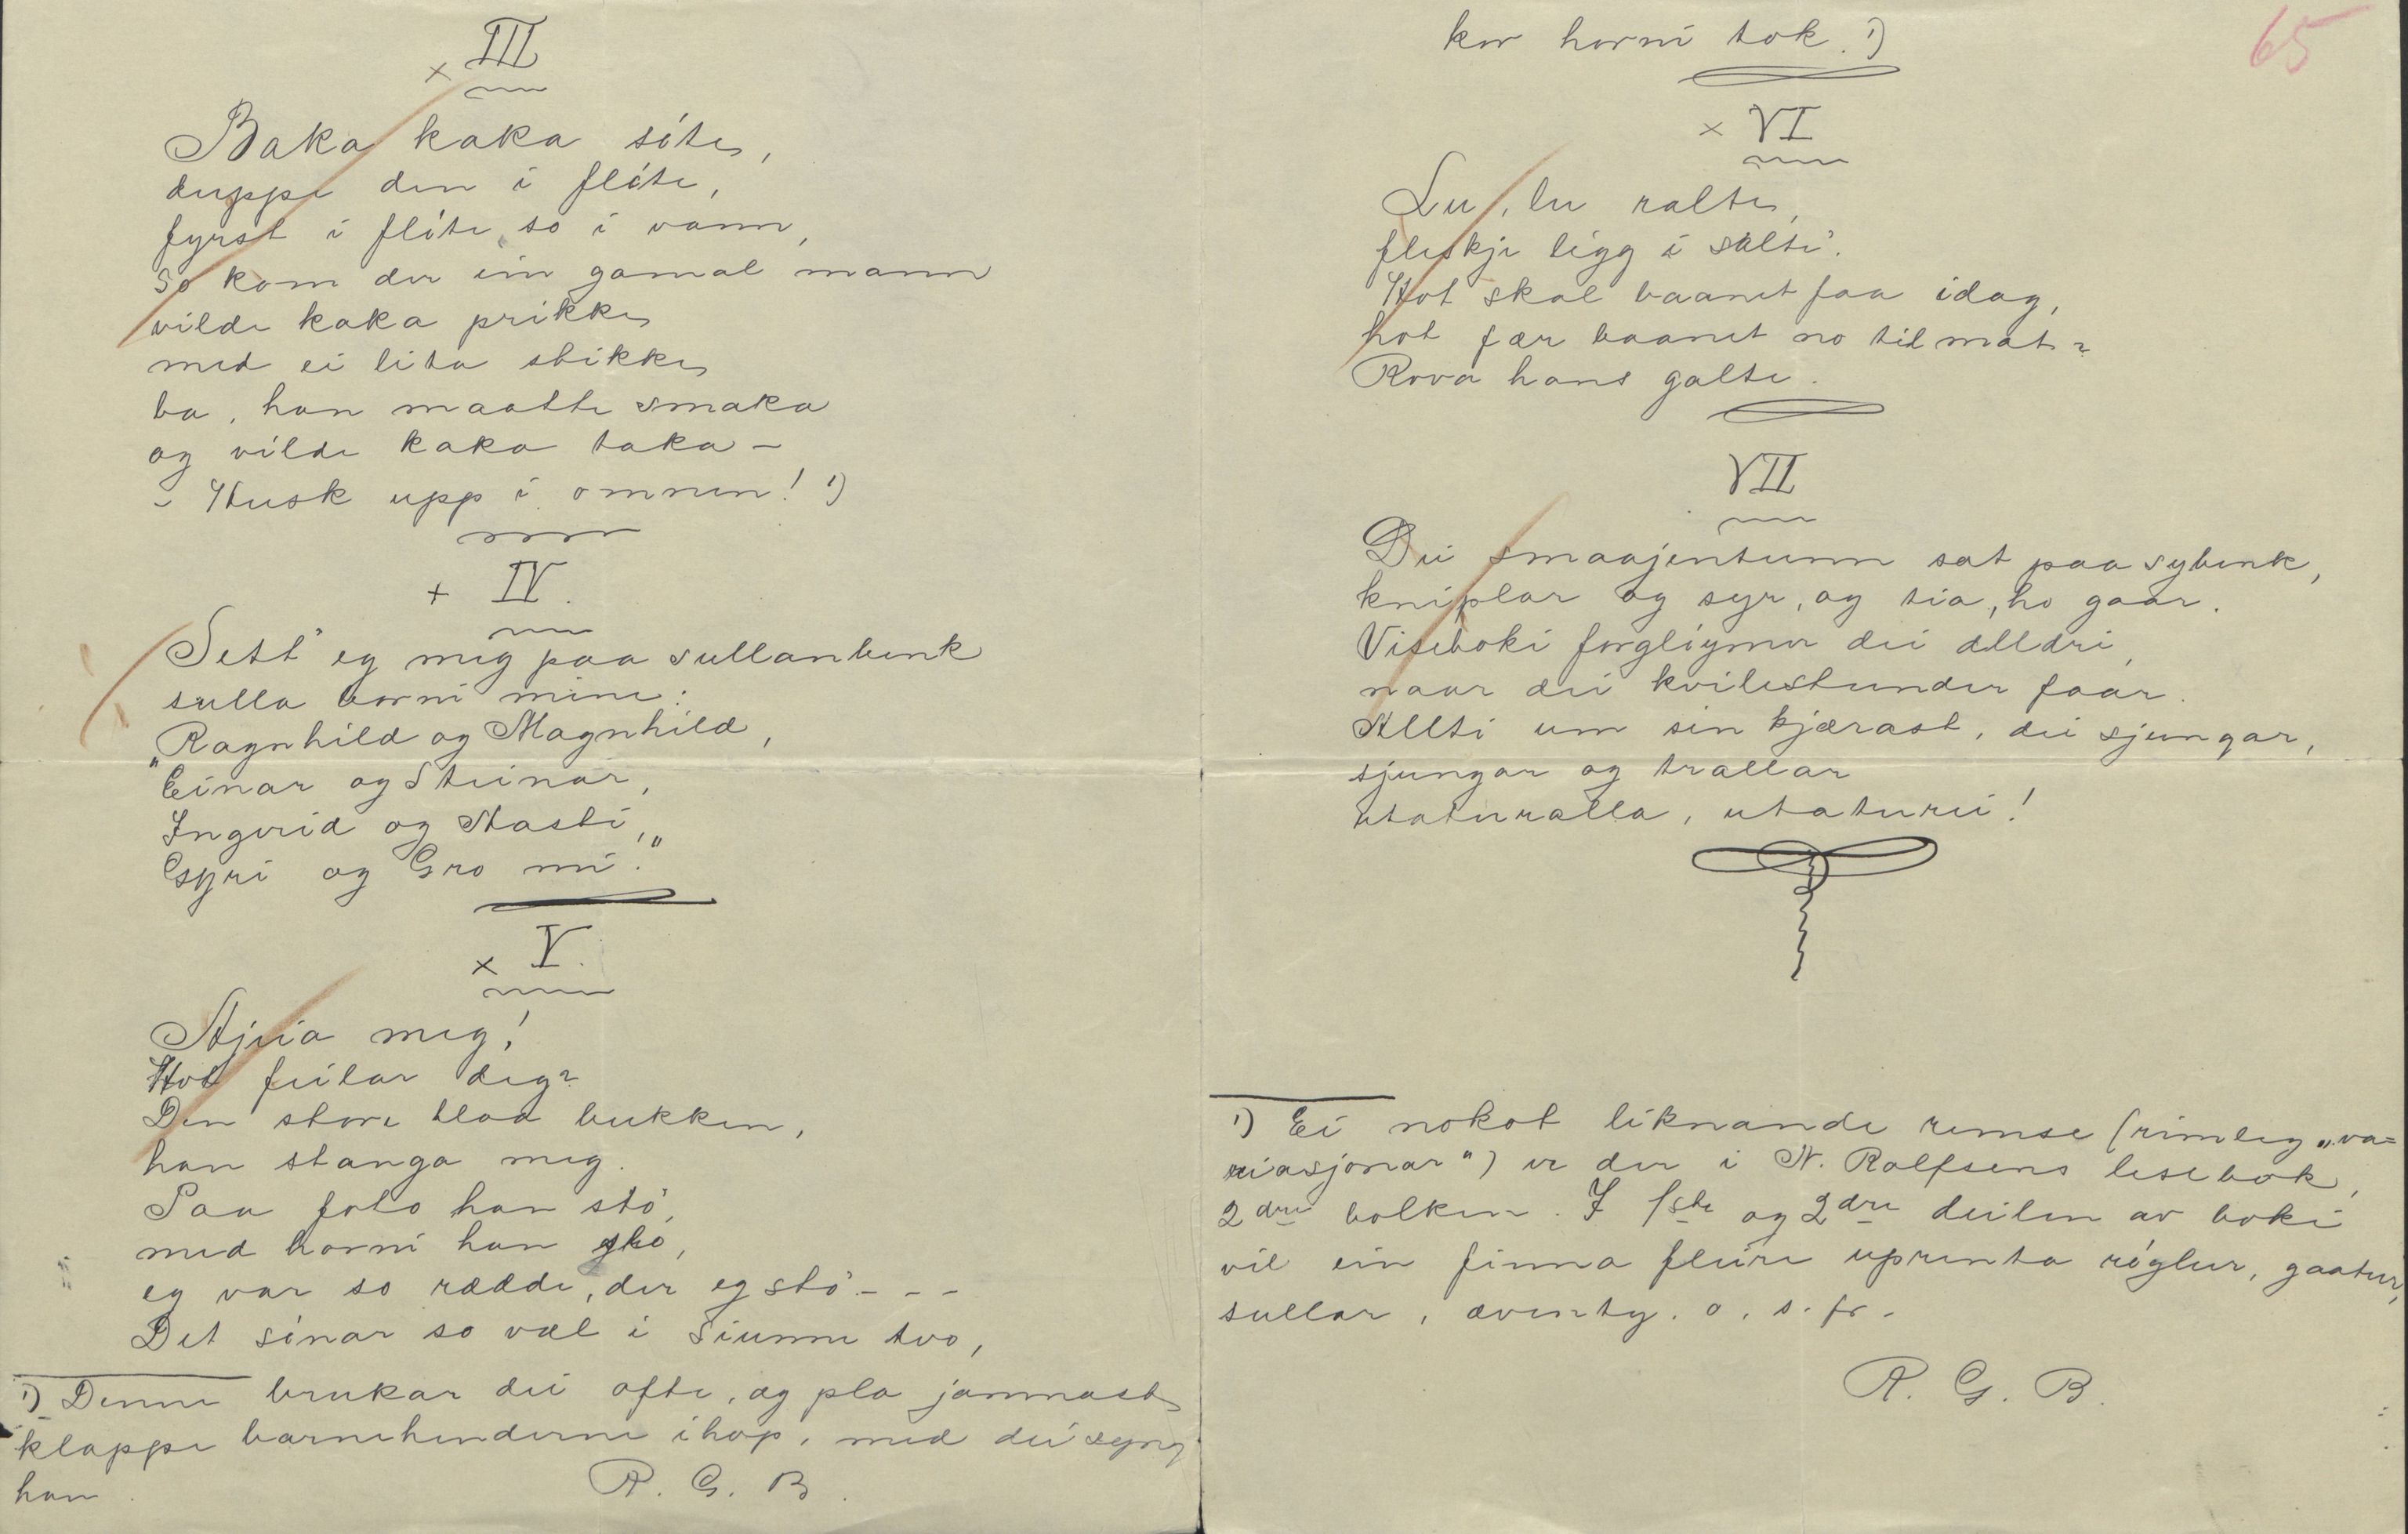 III
Baka kaka söte,
duppe den i flöte,
fyrst i flöte, so i vann,
So kom der ein gamal mann
vilde kaka prikke
med ei lita stikke
ba, han maatte smaka
og vilde kaka taka –
– Husk upp i omnen! 1)
IV.
Sett' eg meg paa sullanbenk
sulla borni mine:
"Ragnhild og Magnhild,
Einar og Steinar,
Ingerid og Aasti,
Gyri og Gro mi."
V.
Ajeia meg!
Hot feilar deg?
Den store blaa bukken,
han stanga meg.
Paa foto han sto,
med horni han slo,
eg var so rædde, der eg sto - - -
Det sinar so væl i siunne two,
1) Denne brukar dei ofte, og pla jammast
klappe barnehenderne ihop, med dei syng
han.
R. G. B.
kor horni tok. 1)
65
VI
Lu, lu ralte,
fleskje ligg i salte.
Hot skal baanet faa idag,
hot fær baanet no til mat?
Rova hans galte.
VII
Dei smaajentunn sat paa sybenk,
kniplar og syr, og tia, ho gaar.
Viseboki forglöymer dei alldri,
naar dei kvilestunder faar.
Allti um sin kjærast, dei sjungar,
sjungar og trallar
utaturalla, utaturei!
1) Ei nokot liknande remse (rimleg „va=
riasjonar") er der i N. Rolfsens lesebok,
2dre bolken. I 1ste og 2dre deilen av boki
vil ein finna fleire uprenta röglur, gaatur,
sullar, æventy. o. s. fr.
R. G. B.